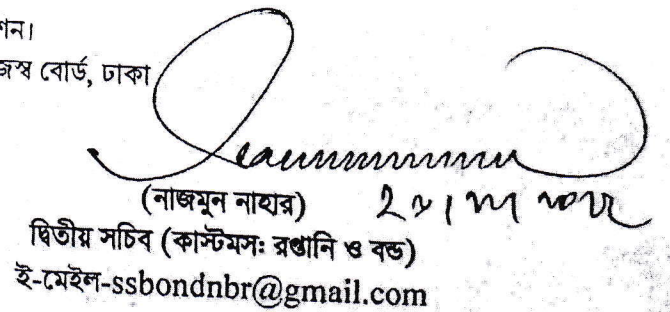 শন।
জস্ব বোর্ড, ঢাকা
(নাজমুন নাহার)
দ্বিতীয় সচিব (কাস্টমসঃ রপ্তানি ও বন্ড)
ই-মেইল-ssbondnbr@gmail.com